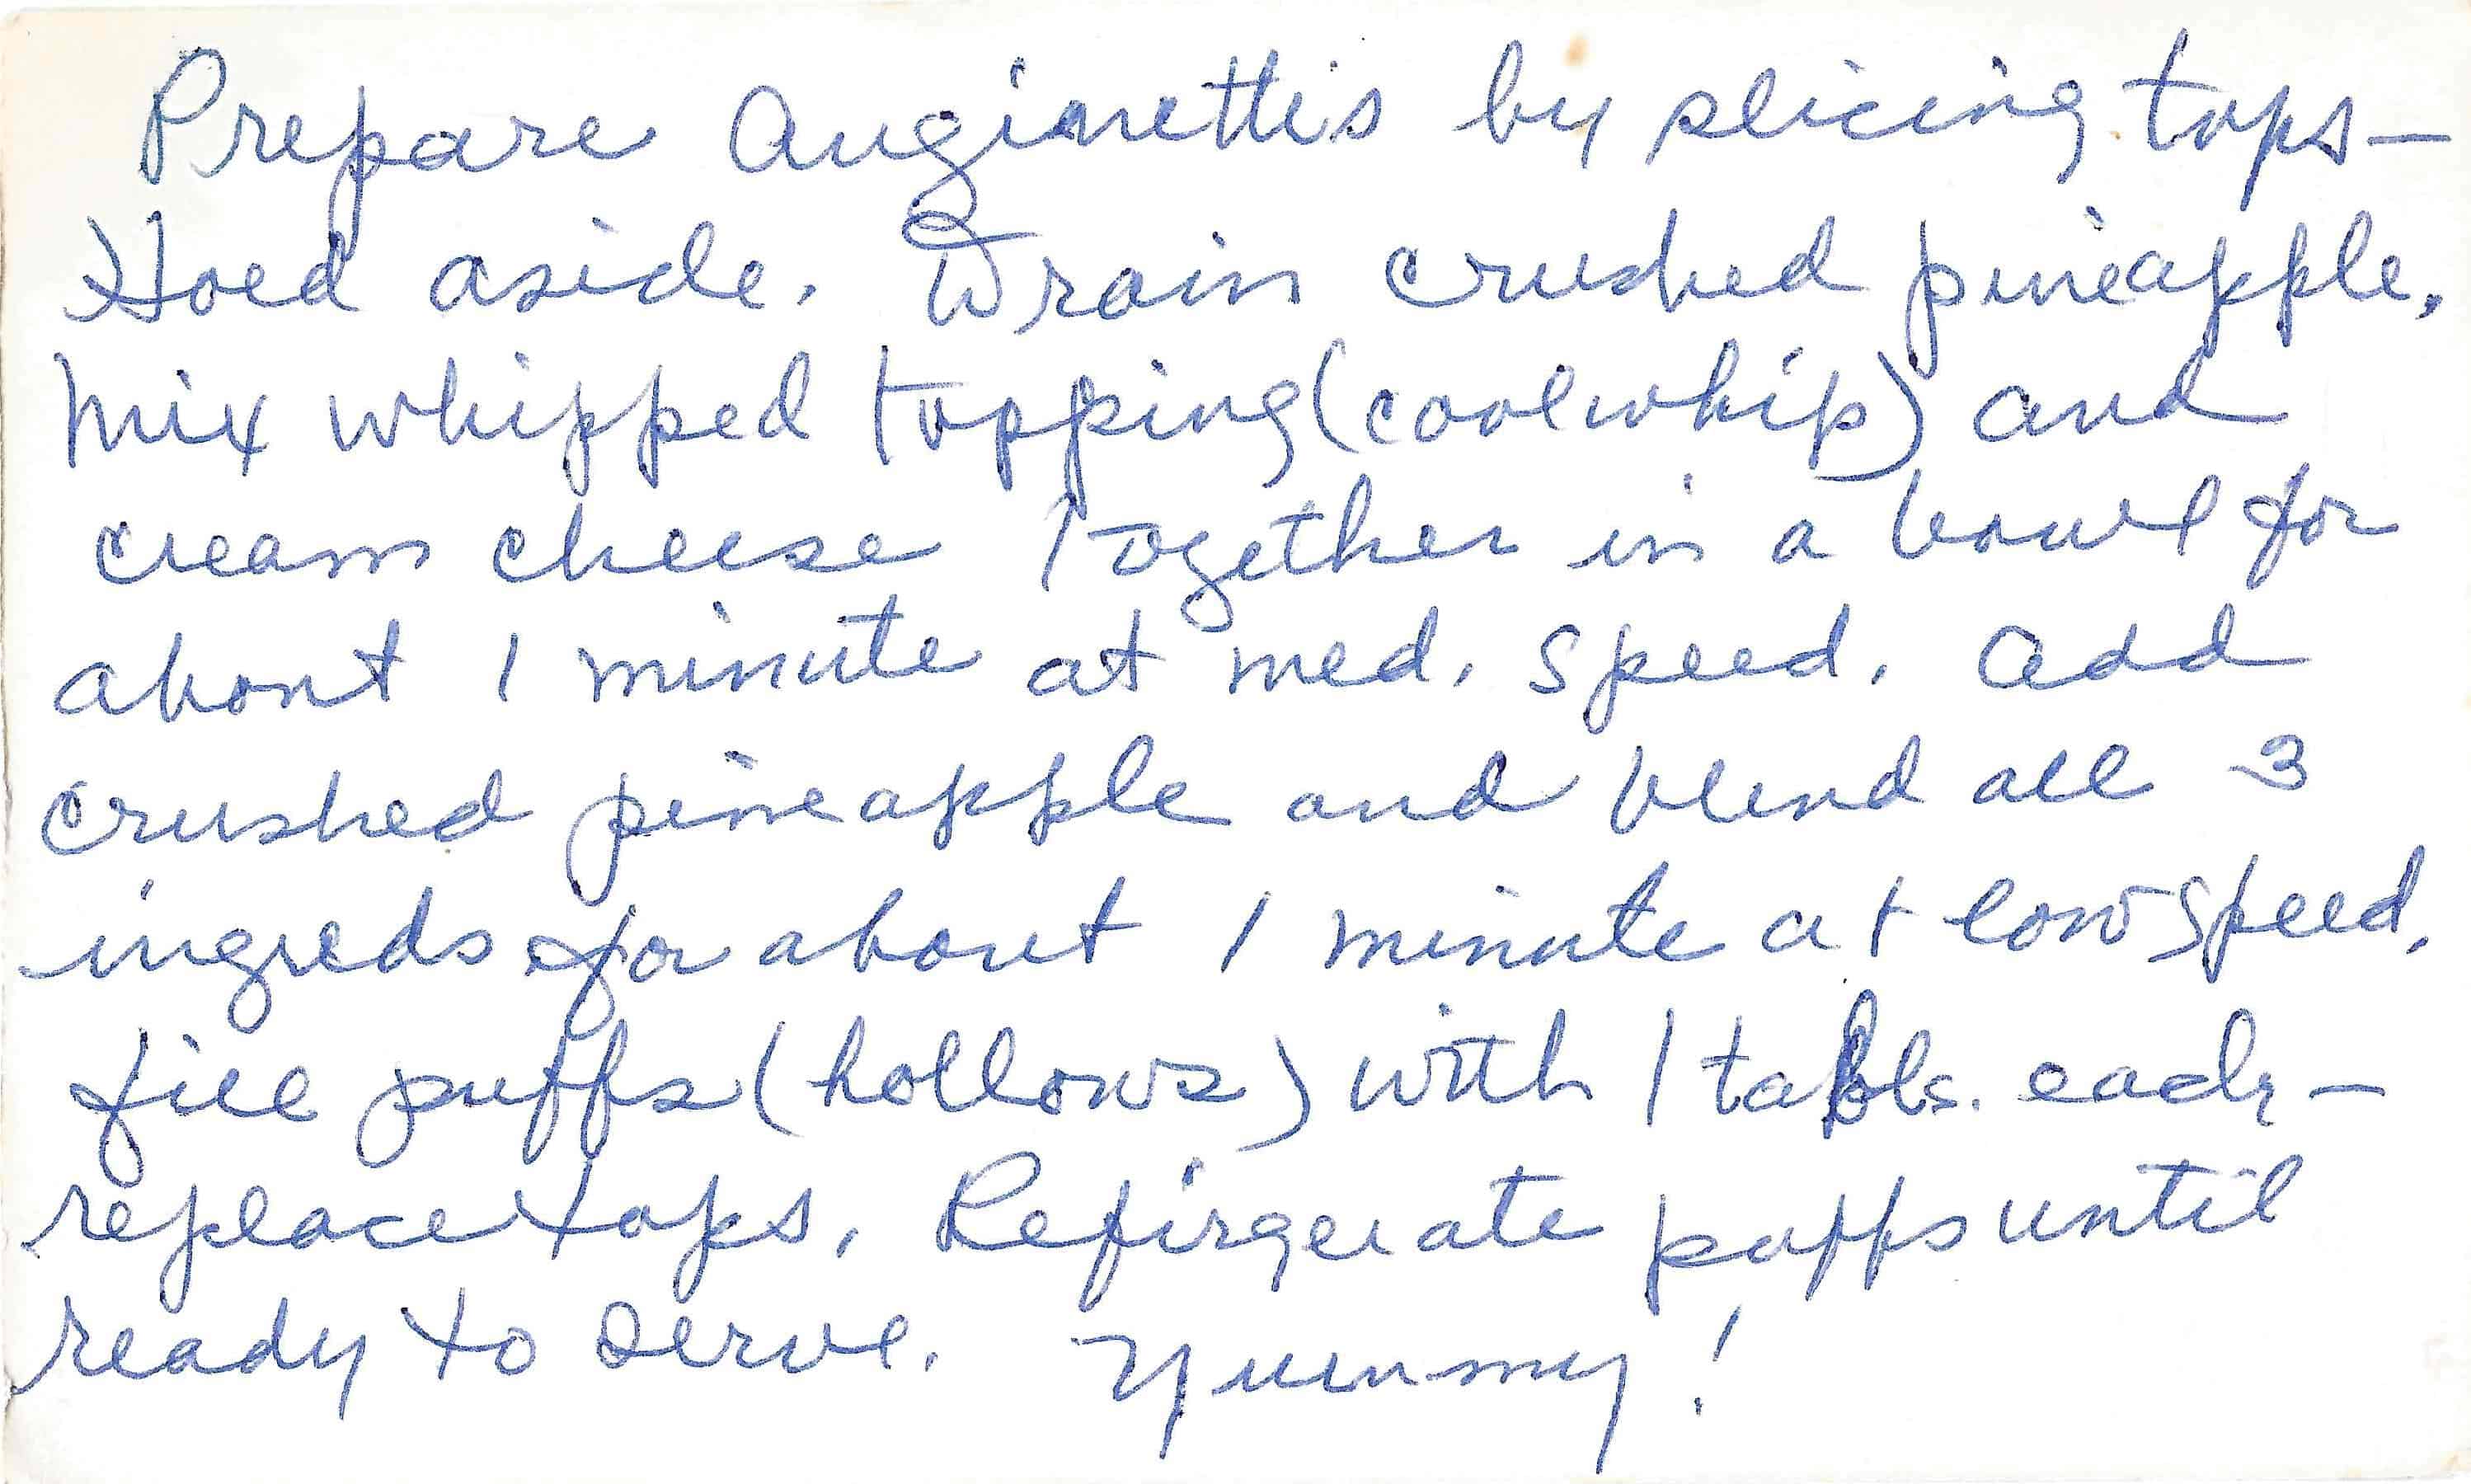 Prepare Anginettis by slicing tops-
Hold aside. Drain crushed pineapple.
Mix whipped topping (coolwhip) and
cream cheese together in a bowl for
about 1 minute at med. speed. Add
crushed pineapple and blend all 3
ingreds for about 1 minute at low speed.
fill puffs (hollows) with 1 tabls. each-
replace tops. Refirgerate puffs until
ready to serve. Yummy!